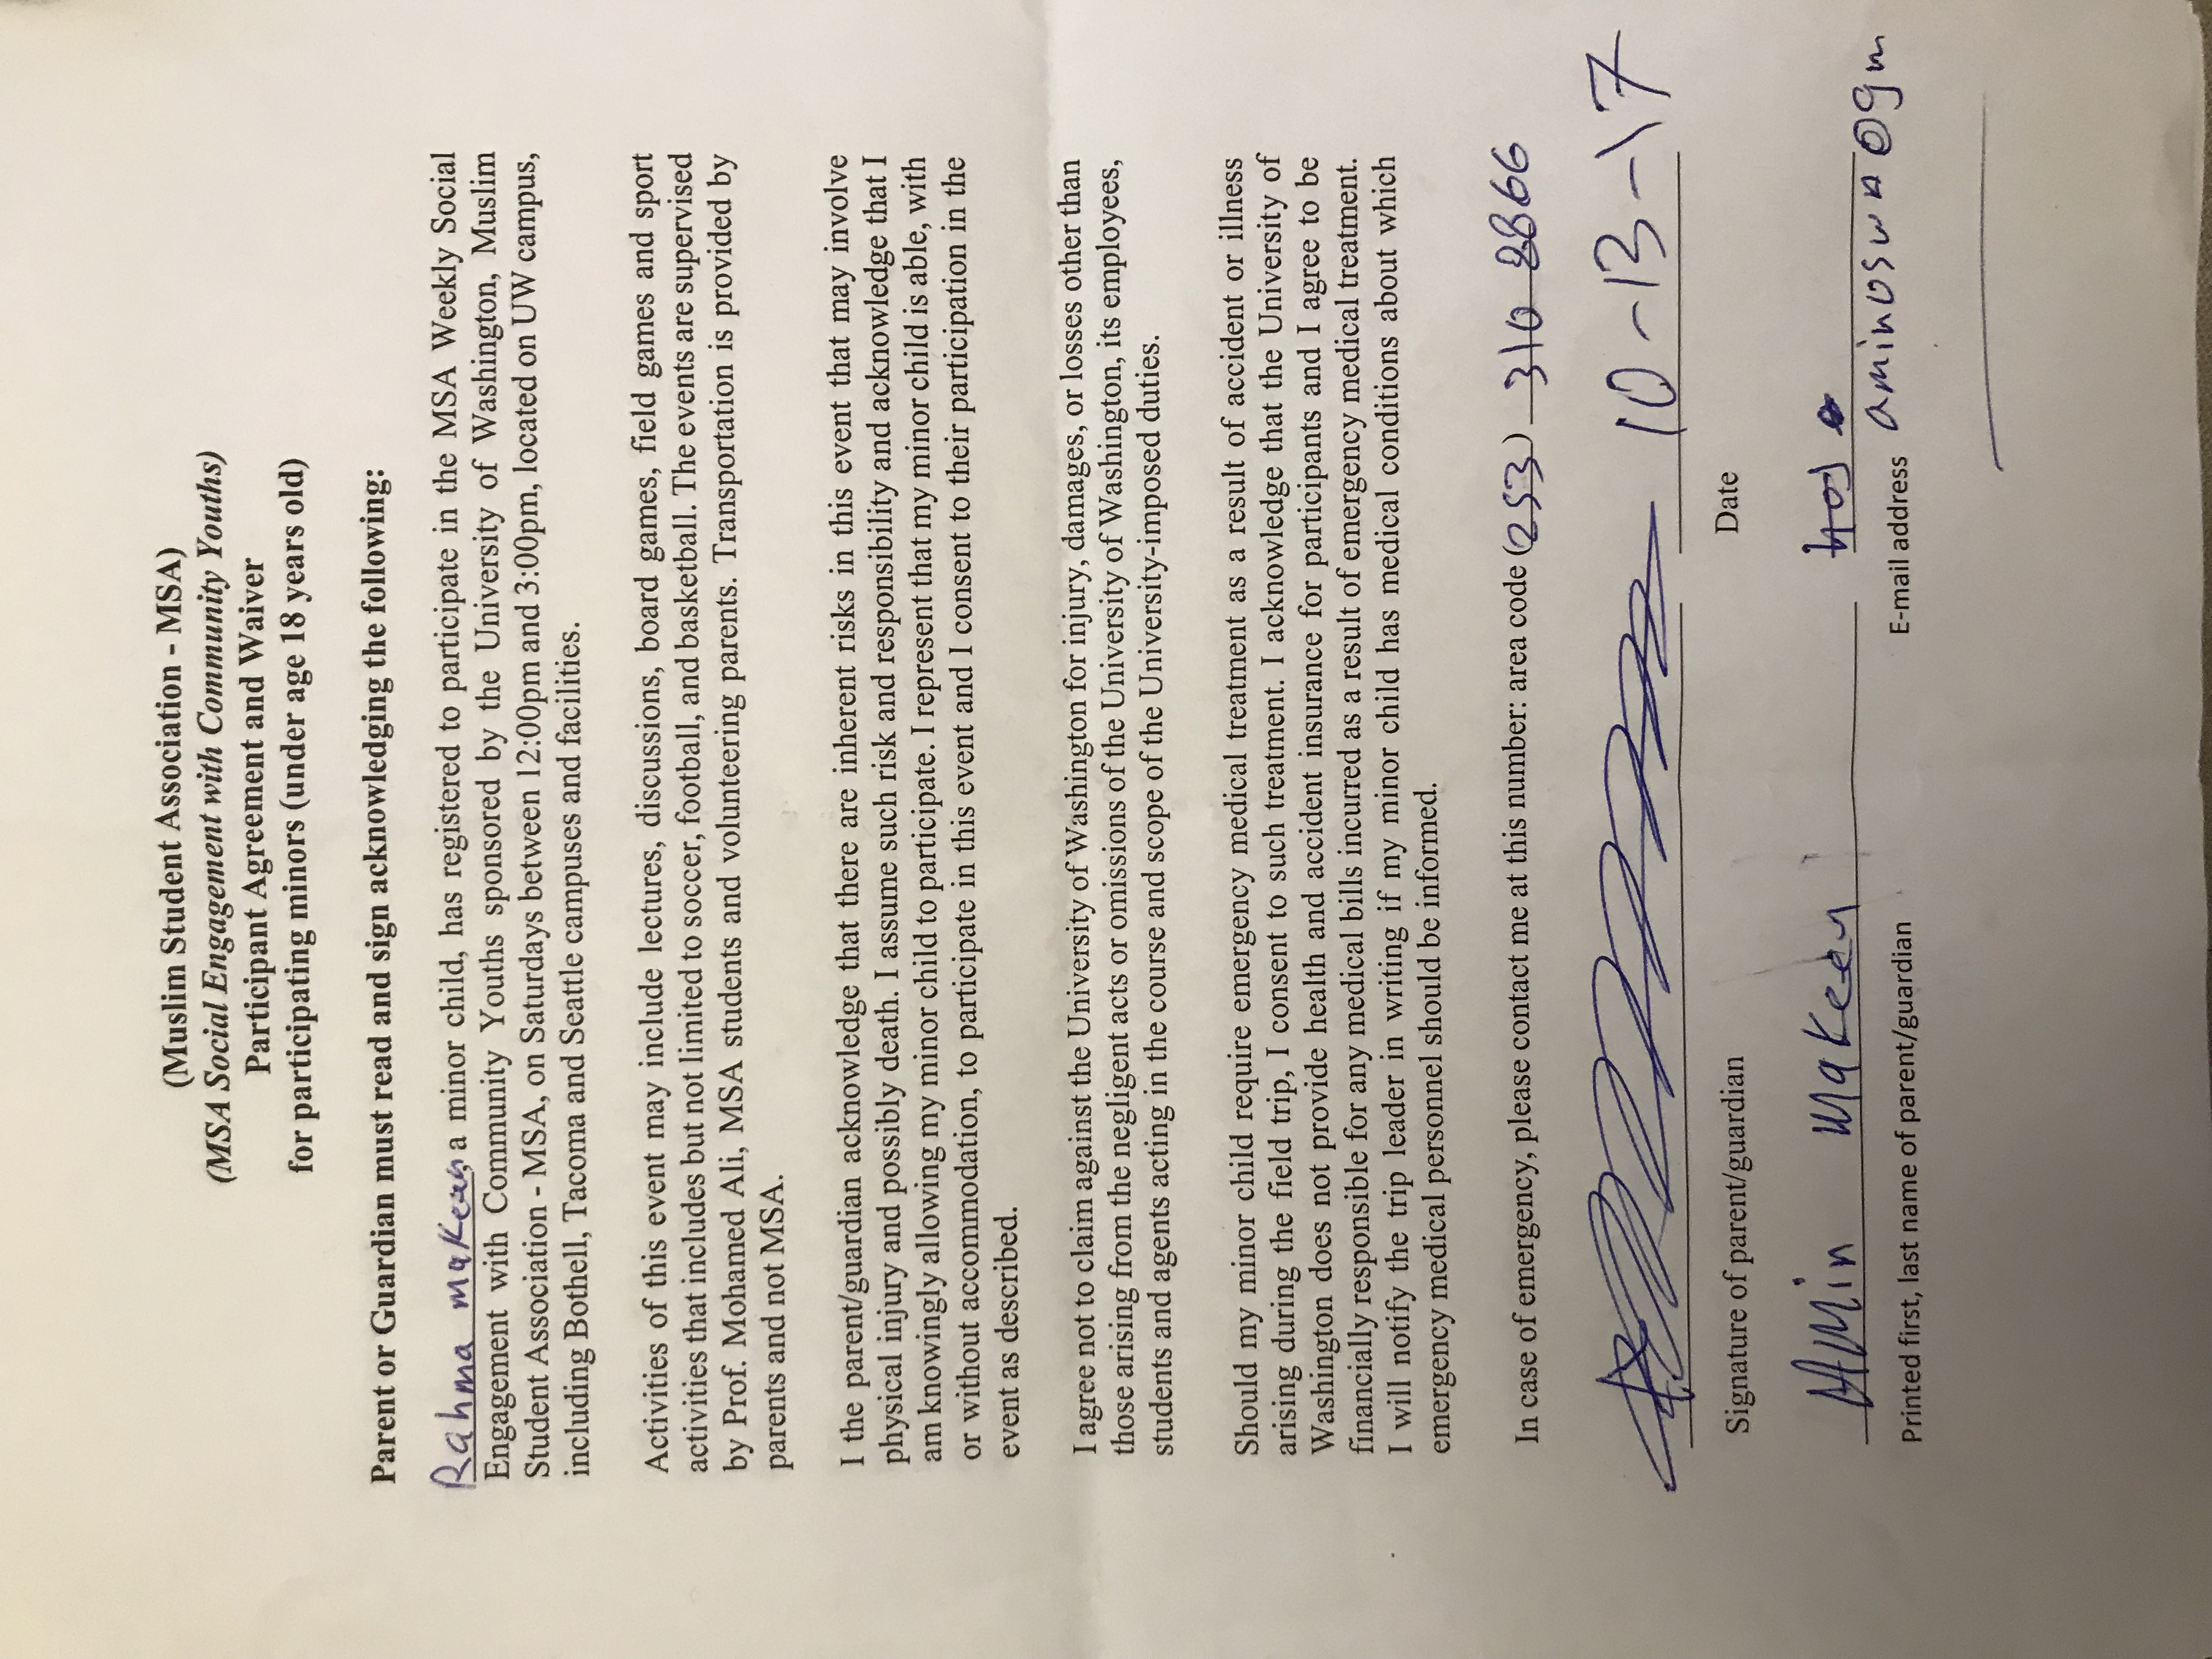 (Muslim Student Association - MSA)
(MSA Social Engagement with Community Youths)
Participant Agreement and Waiver
for participating minors (under age 18 years old)
Parent or Guardian must read and sign acknowledging the following:
Rahma makeen, a minor child, has registered to participate in the MSA Weekly Social
Engagement with Community Youths sponsored by the University of Washington, Muslim
Student Association - MSA, on Saturdays between 12:00pm and 3:00pm, located on UW campus,
including Bothell, Tacoma and Seattle campuses and facilities.
Activities of this event may include lectures, discussions, board games, field games and sport
activities that includes but not limited to soccer, football, and basketball. The events are supervised
by Prof. Mohamed Ali, MSA students and volunteering parents. Transportation is provided by
parents and not MSA.
I the parent/guardian acknowledge that there are inherent risks in this event that may involve
physical injury and possibly death. I assume such risk and responsibility and acknowledge that I
am knowingly allowing my minor child to participate. I represent that my minor child is able, with
or without accommodation, to participate in this event and I consent to their participation in the
event as described.
I agree not to claim against the University of Washington for injury, damages, or losses other than
those arising from the negligent acts or omissions of the University of Washington, its employees,
students and agents acting in the course and scope of the University-imposed duties.
Should my minor child require emergency medical treatment as a result of accident or illness
arising during the field trip, I consent to such treatment. I acknowledge that the University of
Washington does not provide health and accident insurance for participants and I agree to be
financially responsible for any medical bills incurred as a result of emergency medical treatment.
I will notify the trip leader in writing if my minor child has medical conditions about which
emergency medical personnel should be informed.
In case of emergency, please contact me at this number: area code (253) 310 8866
10-13-17
Signature of parent/guardian Date
AMin Makeen
Printed first, last name of parent/guardian E-mail address aminoswa@gm